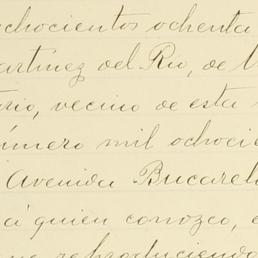 ochocientos ochenta
artínez del Rio, de
rio, vecino de esta
número mil ochocie
Avenida Bucarel
á quien conozco, e
reproduciendo